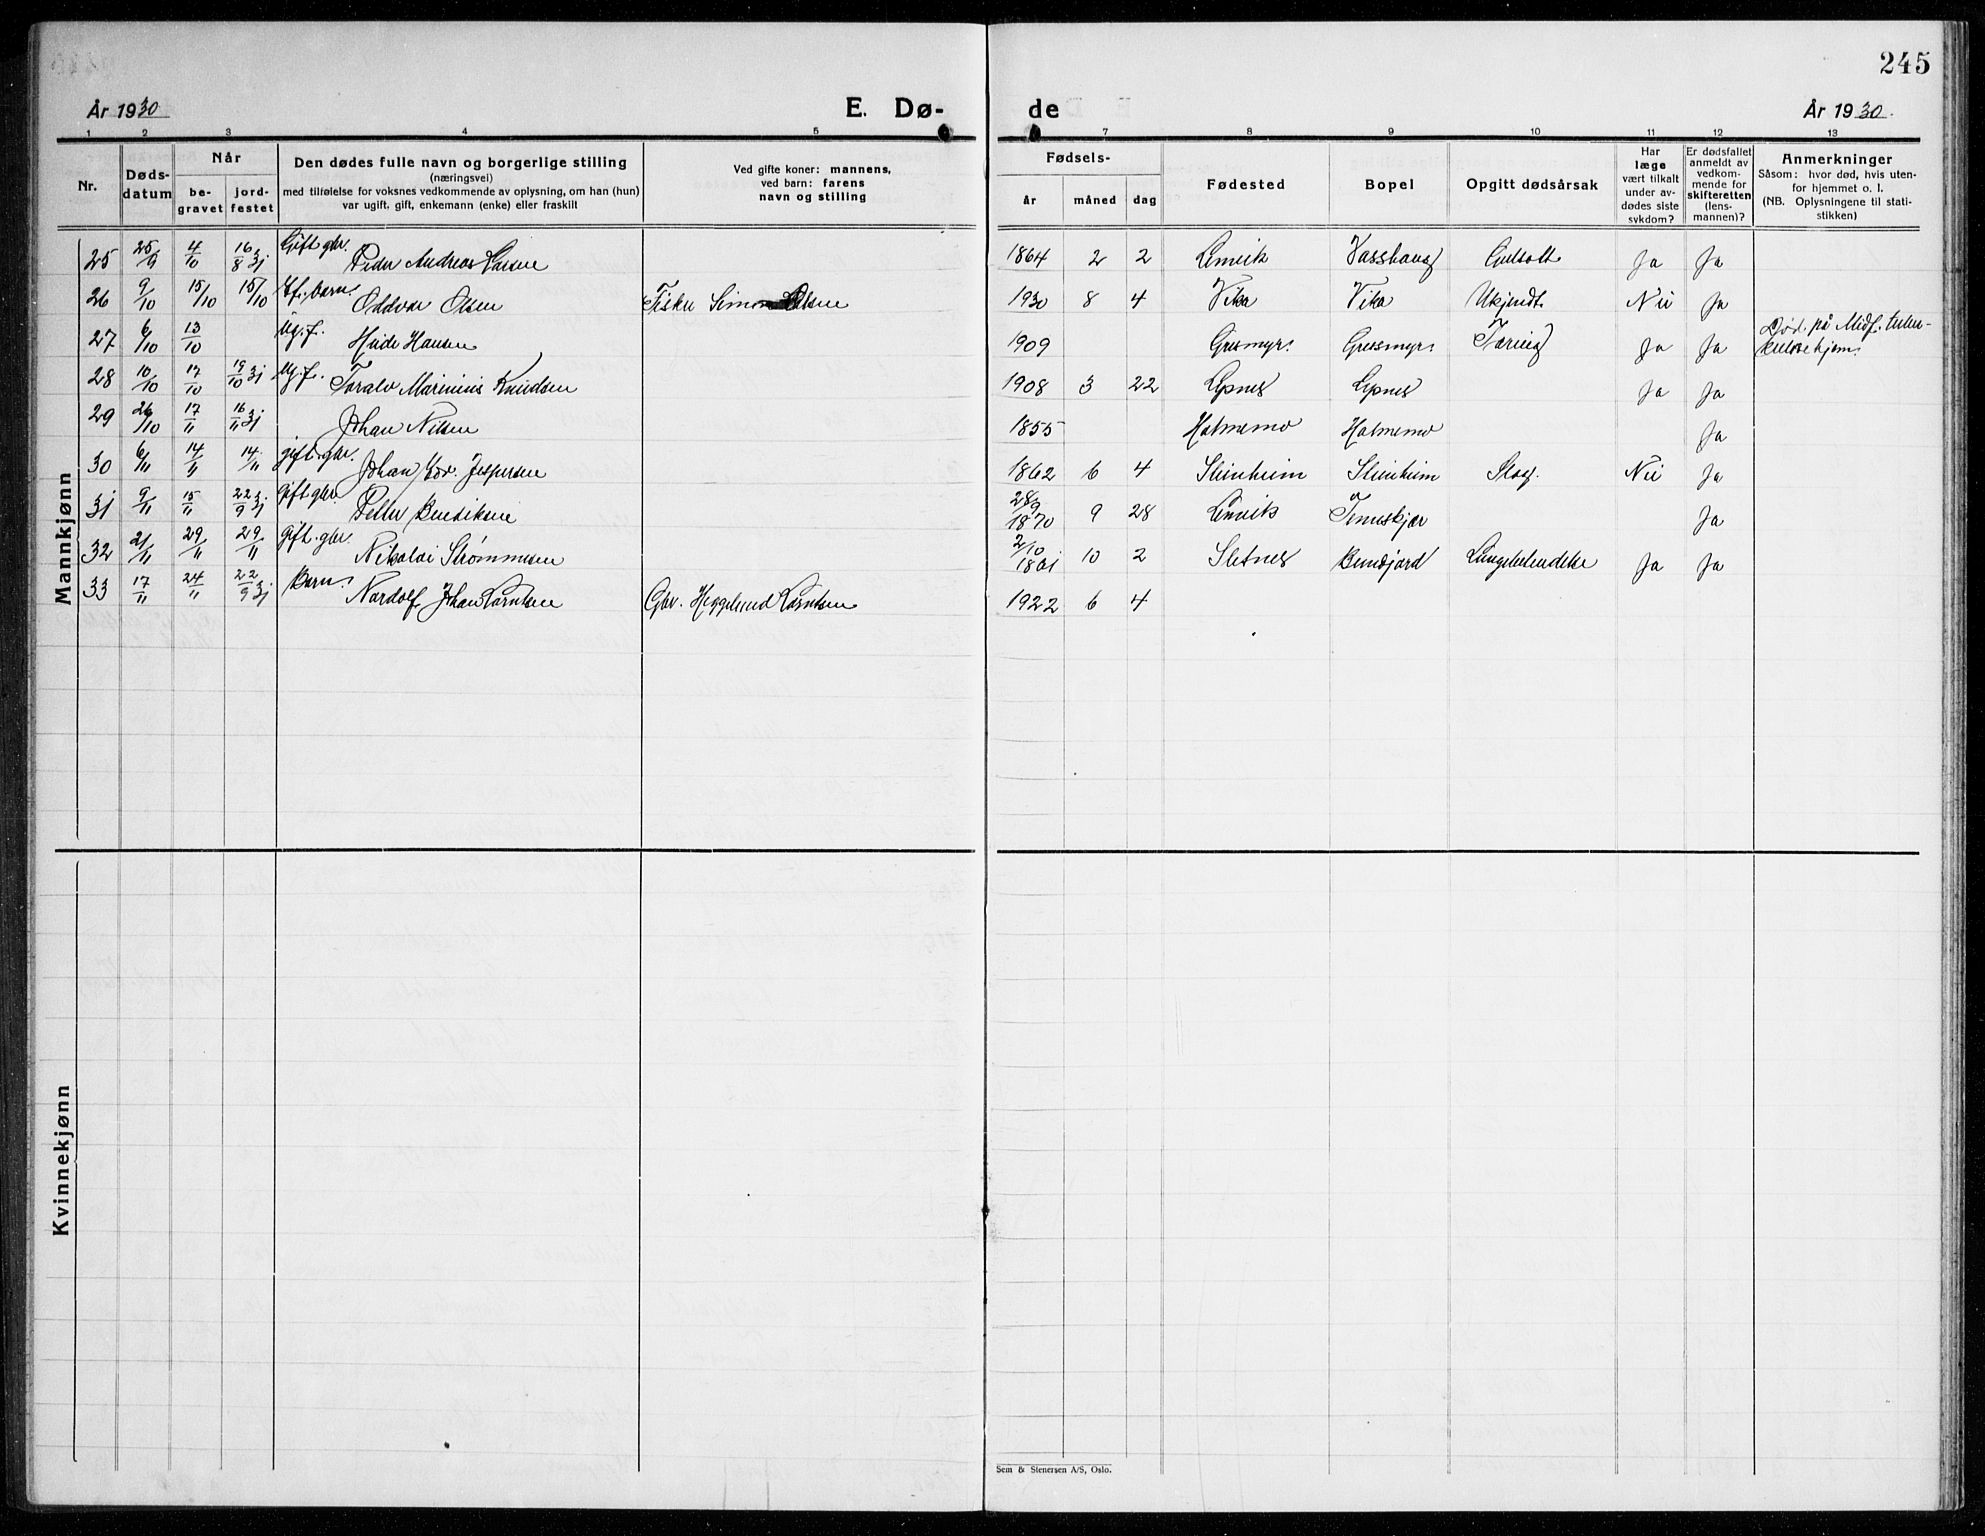 245
År 1930
E. Dø-
de
År 1930
1 2 3 4 5 7 8 9 10 11 12 13
Nr.
Døds-
datum
Når
be-
gravet
jord-
festet
Den dødes fulle navn og borgerlige stilling
(næringsvei)
med tilføielse for voksnes vedkommende av oplysning, om han (hun)
var ugift, gift, enkemann (enke) eller fraskilt
Ved gifte koner: mannens,
ved barn: farens
navn og stilling
Fødsels-
år måned dag
Fødested
Bopel
Opgitt dødsårsak
Har
læge
vært tilkalt
under av-
dødes siste
sykdom?
Er dødsfallet
anmeldt av
vedkom-
mende for
skifteretten
(lens-
mannen)?
Anmerkninger
Såsom: hvor død, hvis uten-
for hjemmet o. l.
(NB. Oplysningene til stati-
stikken)
Mannkjønn
25 25/9 4/10 16/8 31 Gift gbr. Peder Andreas Larsen 1864 2 2 Lenvik Vasshaug Ja Ja
26 9/10 15/10 15/10 barn. Oddvar Olsen Fisker Simon Olsen 1930 8 4 Vika Vika Ukjendt Nei Ja
27 6/10 13/10 Ug. f. Hansen 1909 Gresmyr. Gresmyr. Tæring Ja Ja Død på Midf. tuber-
kulosehjem.
28 10/10 17/10 19/10 31 Ug. f. Toralv Marinius Knudsen 1908 3 22 Lysnes Lysnes Ja Ja
29 26/10 17/11 16/11 31 Johan Nilsen 1855 Holmemo Holmemo Ja
30 6/11 14/11 14/11 gift. gbr. Johan Edv. Jespersen 1862 6 4 Steinheim Steinheim Slag. Nei Ja
31 9/11 15/11 22/9 31 Gift gbr. Petter Bendiksen 28/9 1870 9 28 Lenvik Ja
32 21/11 29/11 29/11 Gift. gbr. Nikolai Strømmesen 2/10 1861 10 2 Sletnes Bundjord Lungebetendelse Ja Ja
33 17/11 24/11 22/9 31 Barn. Nordolf Johan Lorntsen Gbr. Heggelund Lorntsen 1922 6 4
Kvinnekjønn
Sem & Stenersen A/S, Oslo.